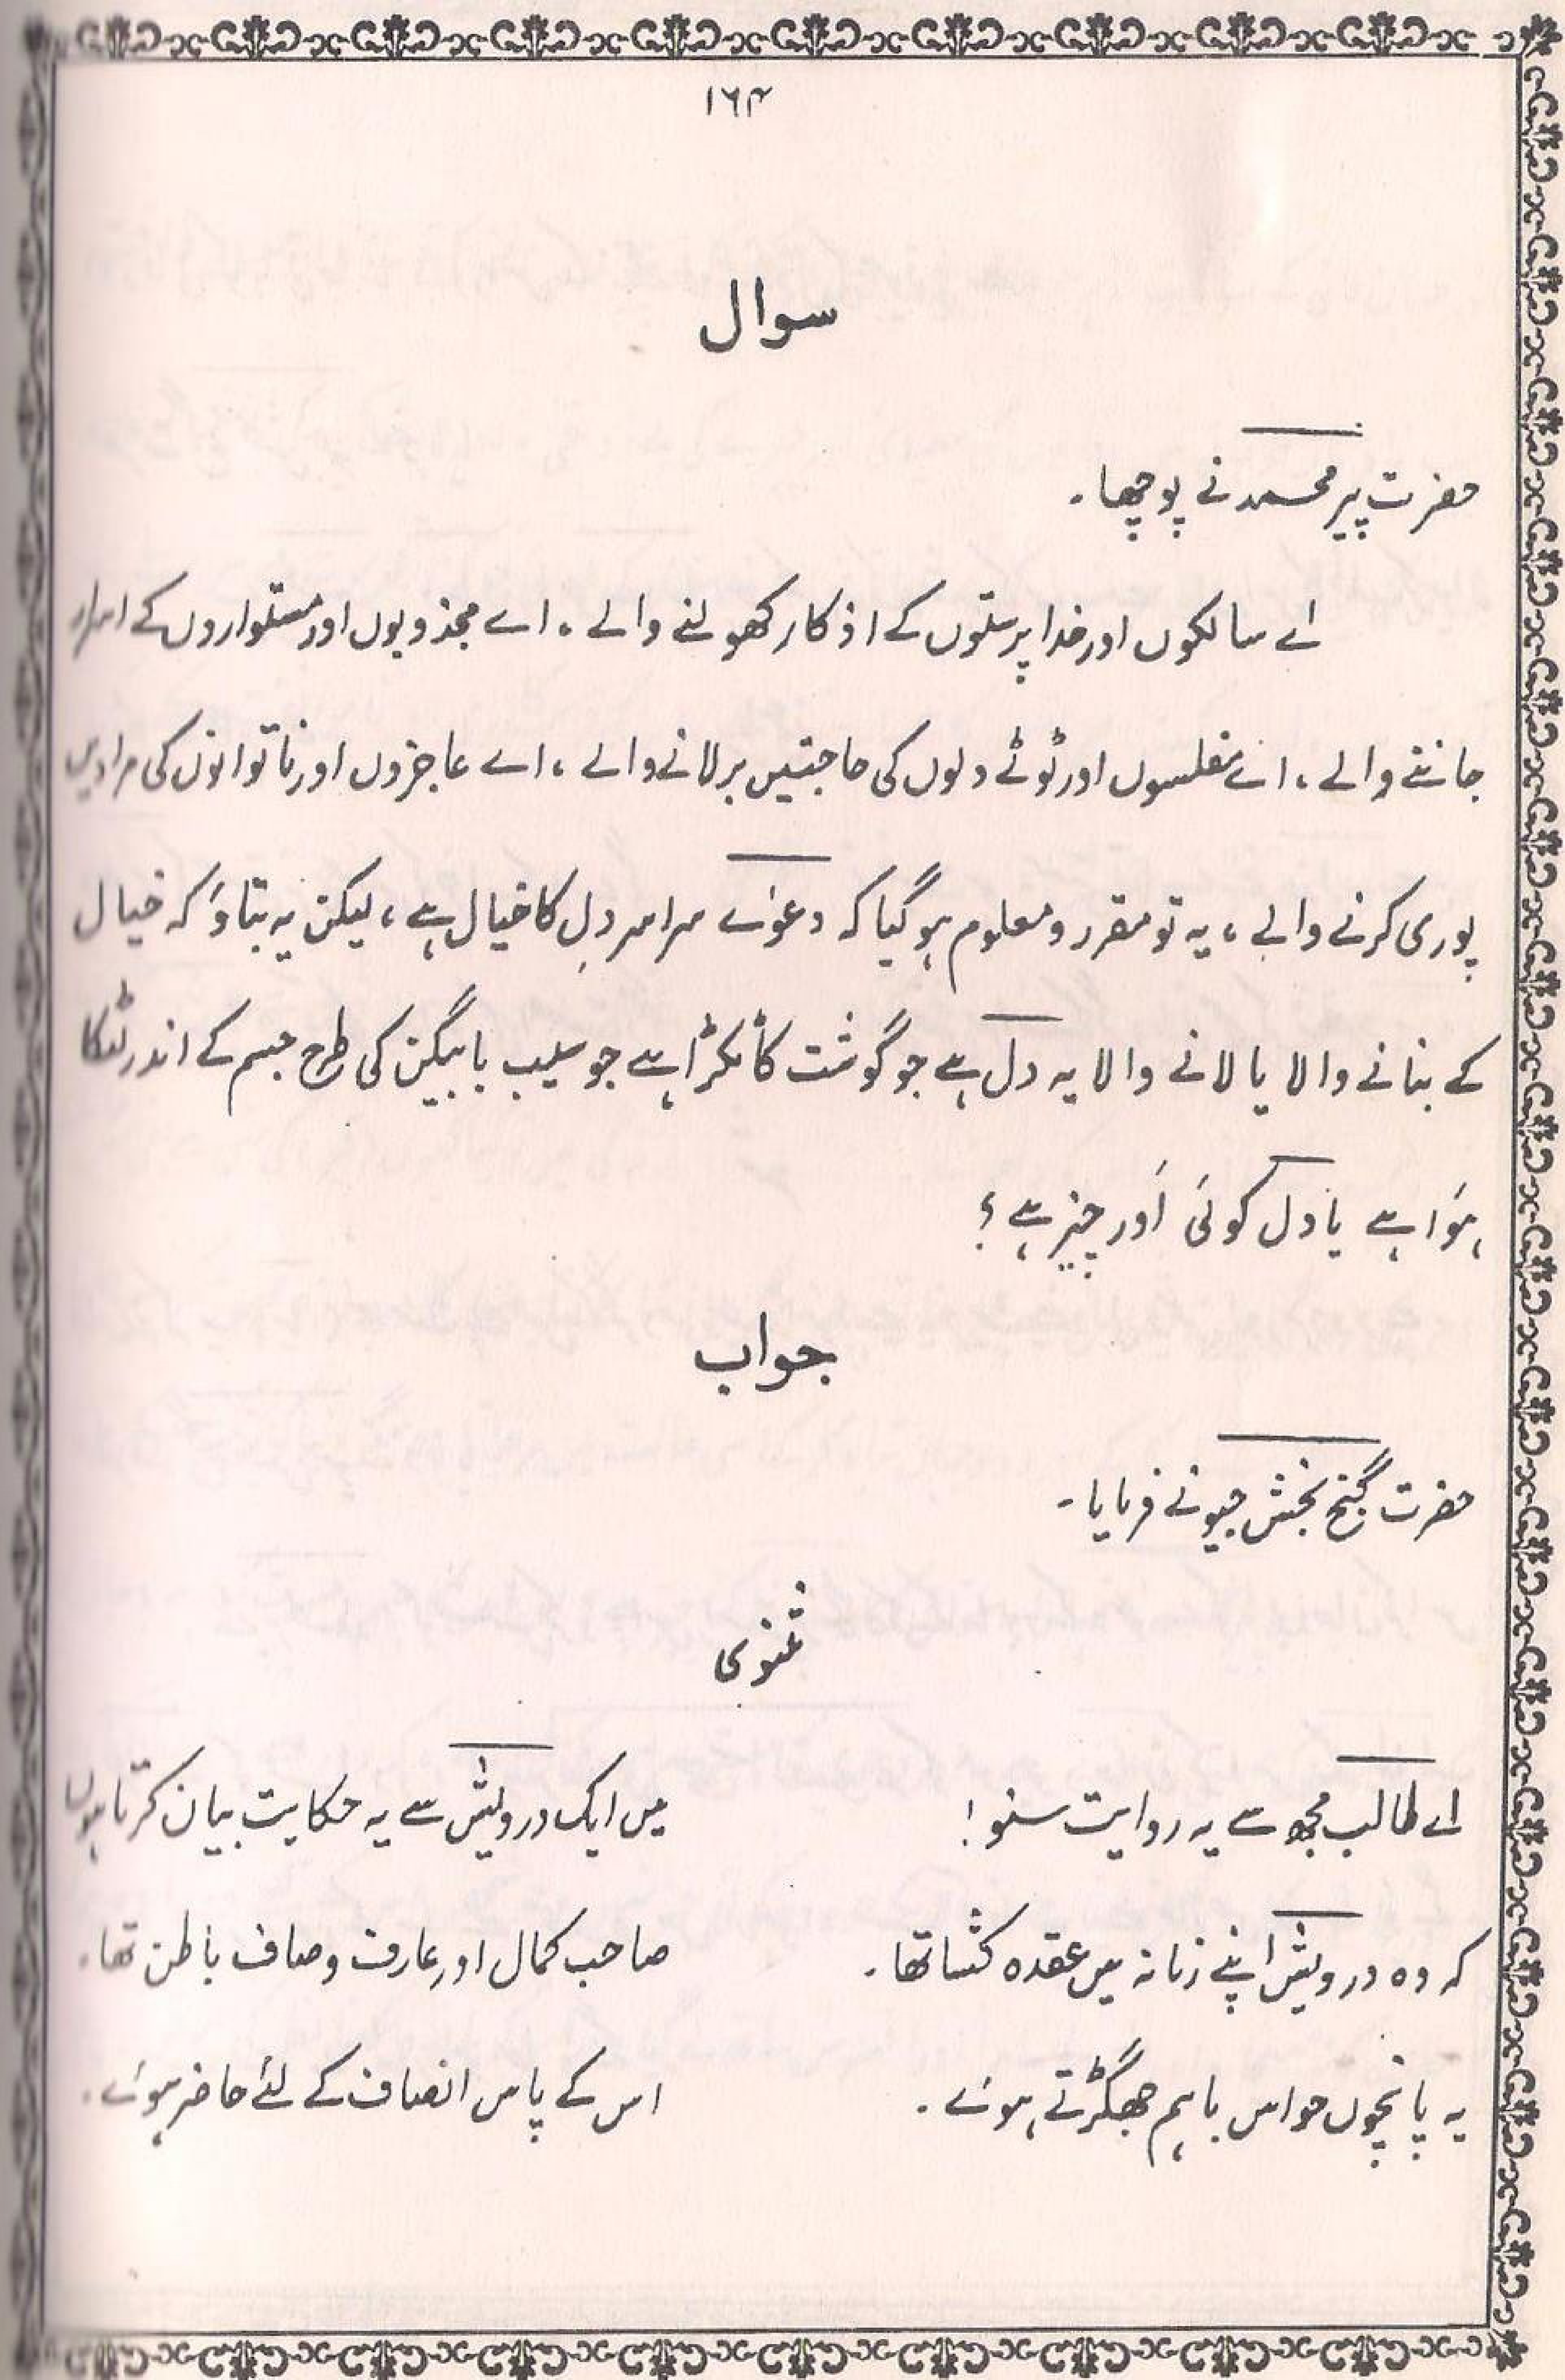 ۱۶۴
سوال
حضرت پیر محمد نے پوچھا۔
اے سالکوں اور خدا پرستوں کے اذکار کھولنے والے ، اے مجذوبوں اور متلواروں کے اسرار
جاننے والے ، اے مفلسوں اور ٹوٹے دلوں کی حاجتیں بر لانے والے ، اے عاجزوں اور ناتوانوں کی مرادیں
پوری کرنے والے ، یہ تو مقرر و معلوم ہو گیا کہ دعوےٰ سراسر دِل کا خیال ہے ، لیکن یہ بتاؤ کہ خیال
کے بنانے والا یا لانے والا یہ دل ہے جو گوشت کا ٹکڑا ہے جو سیب یا بیگن کی طرح جسم کے اندر لٹکا
ہؤا ہے یا دل کوئی اَور چیز ہے ؟
جواب
حضرت گنج بخش جیو نے فرمایا۔
مثنوی
اے طالب مجھ سے یہ روایت سنو ! میں ایک درویش سے یہ حکایت بیان کرتا ہوں
کہ وہ درویش اپنے زمانہ میں عقدہ کشا تھا۔ صاحب کمال اور عارف و صاف باطن تھا۔
یہ پانچوں حواس باہم جھگڑتے ہوئے۔ اس کے پاس انصاف کے لئے حاضر ہوئے۔